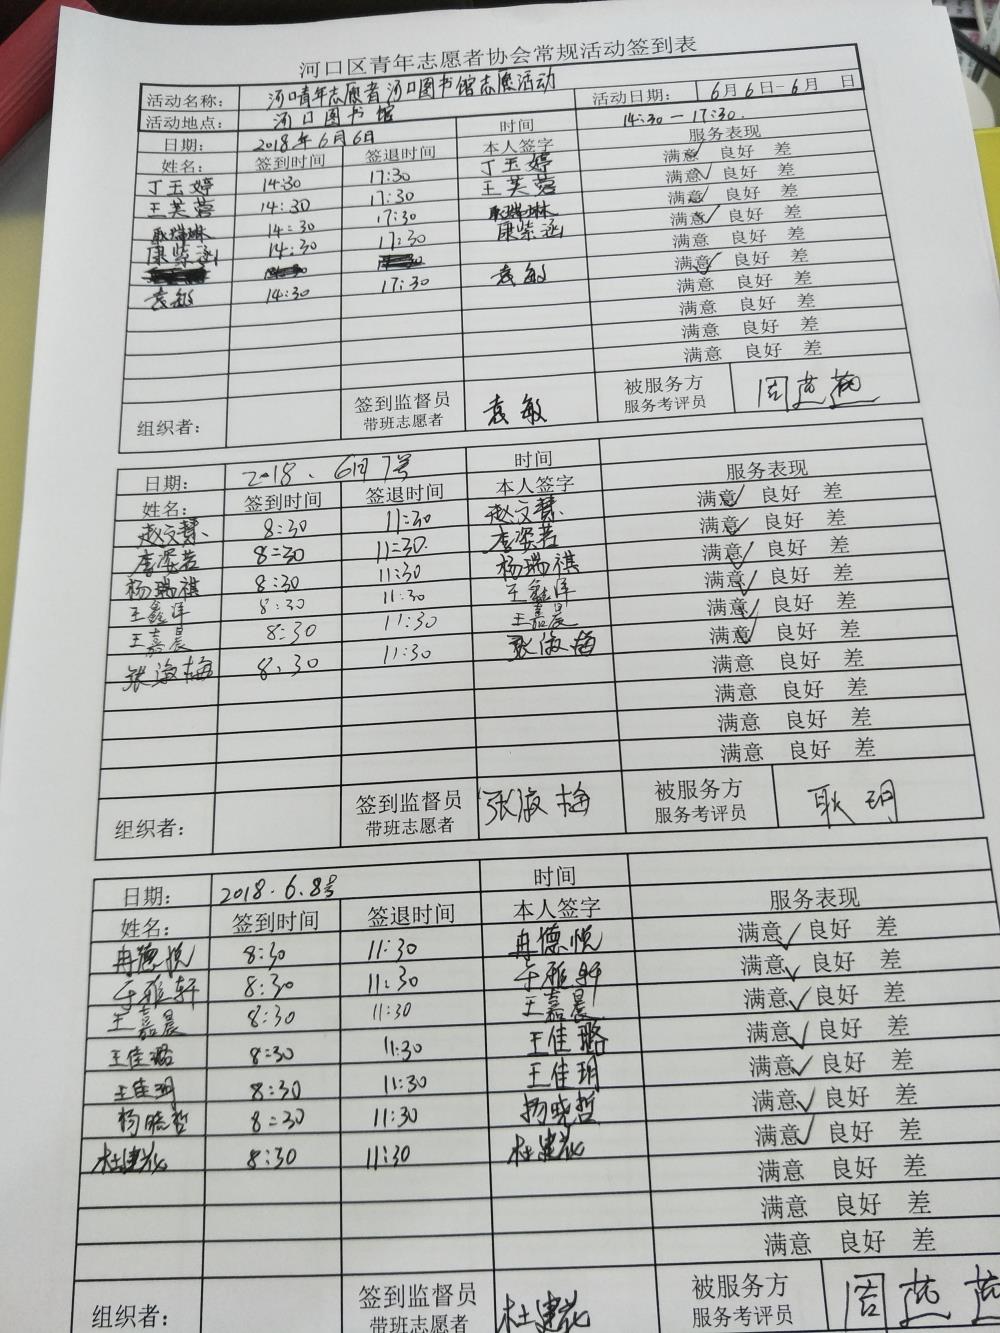 河口区青年志愿者协会常规活动签到表
活动名称： 河口青年志愿者河口图书馆志愿活动 活动日期： 6月6日-6月 日
活动地点： 河口图书馆 时间 14:30-17:30.
日期： 2018年6月6日 服务表现
姓名： 签到时间 签退时间 本人签字 满意 良好 差
丁玉婷 14:30 17:30 丁玉婷 满意✓ 良好 差
王芙蓉 14:30 17:30 王芙蓉 满意 良好 差
耿瑞琳 14:30 17:30 耿瑞琳 满意✓ 良好 差
康紫涵 14:30 17:30 康紫涵 满意 良好 差
满意✓ 良好 差
袁敏 14:30 17:30 袁敏 满意 良好 差
满意 良好 差
满意 良好 差
满意 良好 差
组织者： 签到监督员 带班志愿者 袁敏 被服务方 服务考评员 周燕
日期： 2018.6月7号 时间
姓名： 签到时间 签退时间 本人签字 服务表现
赵文慧 8:30 11:30 赵文慧 满意✓ 良好 差
李姿若 8:30 11:30. 李姿若 满意✓ 良好 差
杨瑞祺 8:30 11:30 杨瑞祺 满意✓ 良好 差
王鑫洋 8:30 11:30 王鑫洋 满意✓ 良好 差
王嘉晨 8:30 11:30 王嘉晨 满意✓ 良好 差
张海梅 8:30 11:30 张海梅 满意✓ 良好 差
满意 良好 差
满意 良好 差
满意 良好 差
满意 良好 差
组织者： 签到监督员 带班志愿者 张海梅 被服务方 服务考评员 耿玥
日期： 2018.6.8号 时间
姓名： 签到时间 签退时间 本人签字 服务表现
冉德悦 8:30 11:30 冉德悦 满意✓ 良好 差
于雅轩 8:30 11:30 于雅轩 满意✓ 良好 差
王嘉晨 8:30 11:30 王嘉晨 满意✓ 良好 差
王佳璐 8:30 11:30 王佳璐 满意✓ 良好 差
王佳玥 8:30 11:30 王佳玥 满意✓ 良好 差
杨晓哲 8:30 11:30 杨晓哲 满意✓ 良好 差
杜建花 8:30 11:30 杜建花 满意✓ 良好 差
满意 良好 差
满意 良好 差
满意 良好 差
组织者： 签到监督员 带班志愿者 杜建花 被服务方 服务考评员 周燕燕